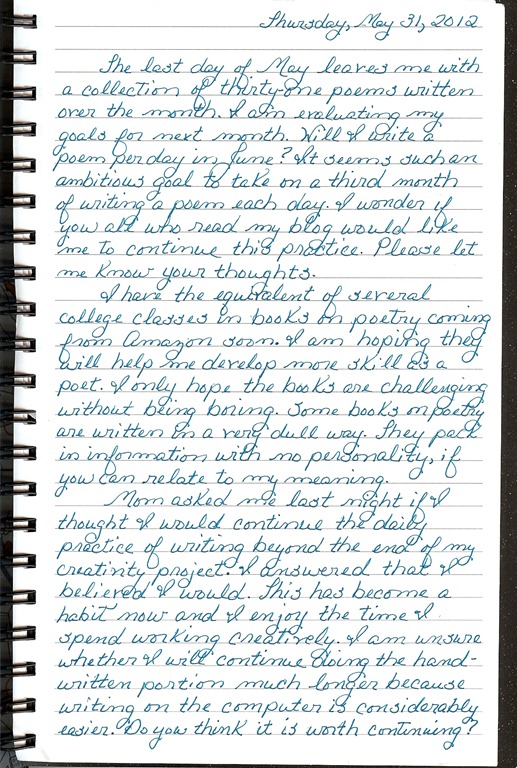 Thursday, May 31, 2012
The last day of May leaves me with
a collection of thirty-one poems written
over the month. I am evaluating my
goals for next month. Will I write a
poem per day in June? It seems such an
ambitious goal to take on a third month
of writing a poem each day. I wonder if
you all who read my blog would like
me to continue this practice. Please let
me know your thoughts.
I have the equivalent of several
college classes in books on poetry coming
from Amazon soon. I am hoping they
will help me develop more skill as a
poet. I only hope the books are challenging
without being boring. Some books on poetry
are written in a very dull way. They pack
in information with no personality, if
you can relate to my meaning.
Mom asked me last night if I
thought I would continue the daily
practice of writing beyond the end of my
creativity project. I answered that I
believed I would. This has become a
habit now and I enjoy the time I
spend working creatively. I am unsure
whether I will continue doing the hand-
written portion much longer because
writing on the computer is considerably
easier. Do you think it is worth continuing?